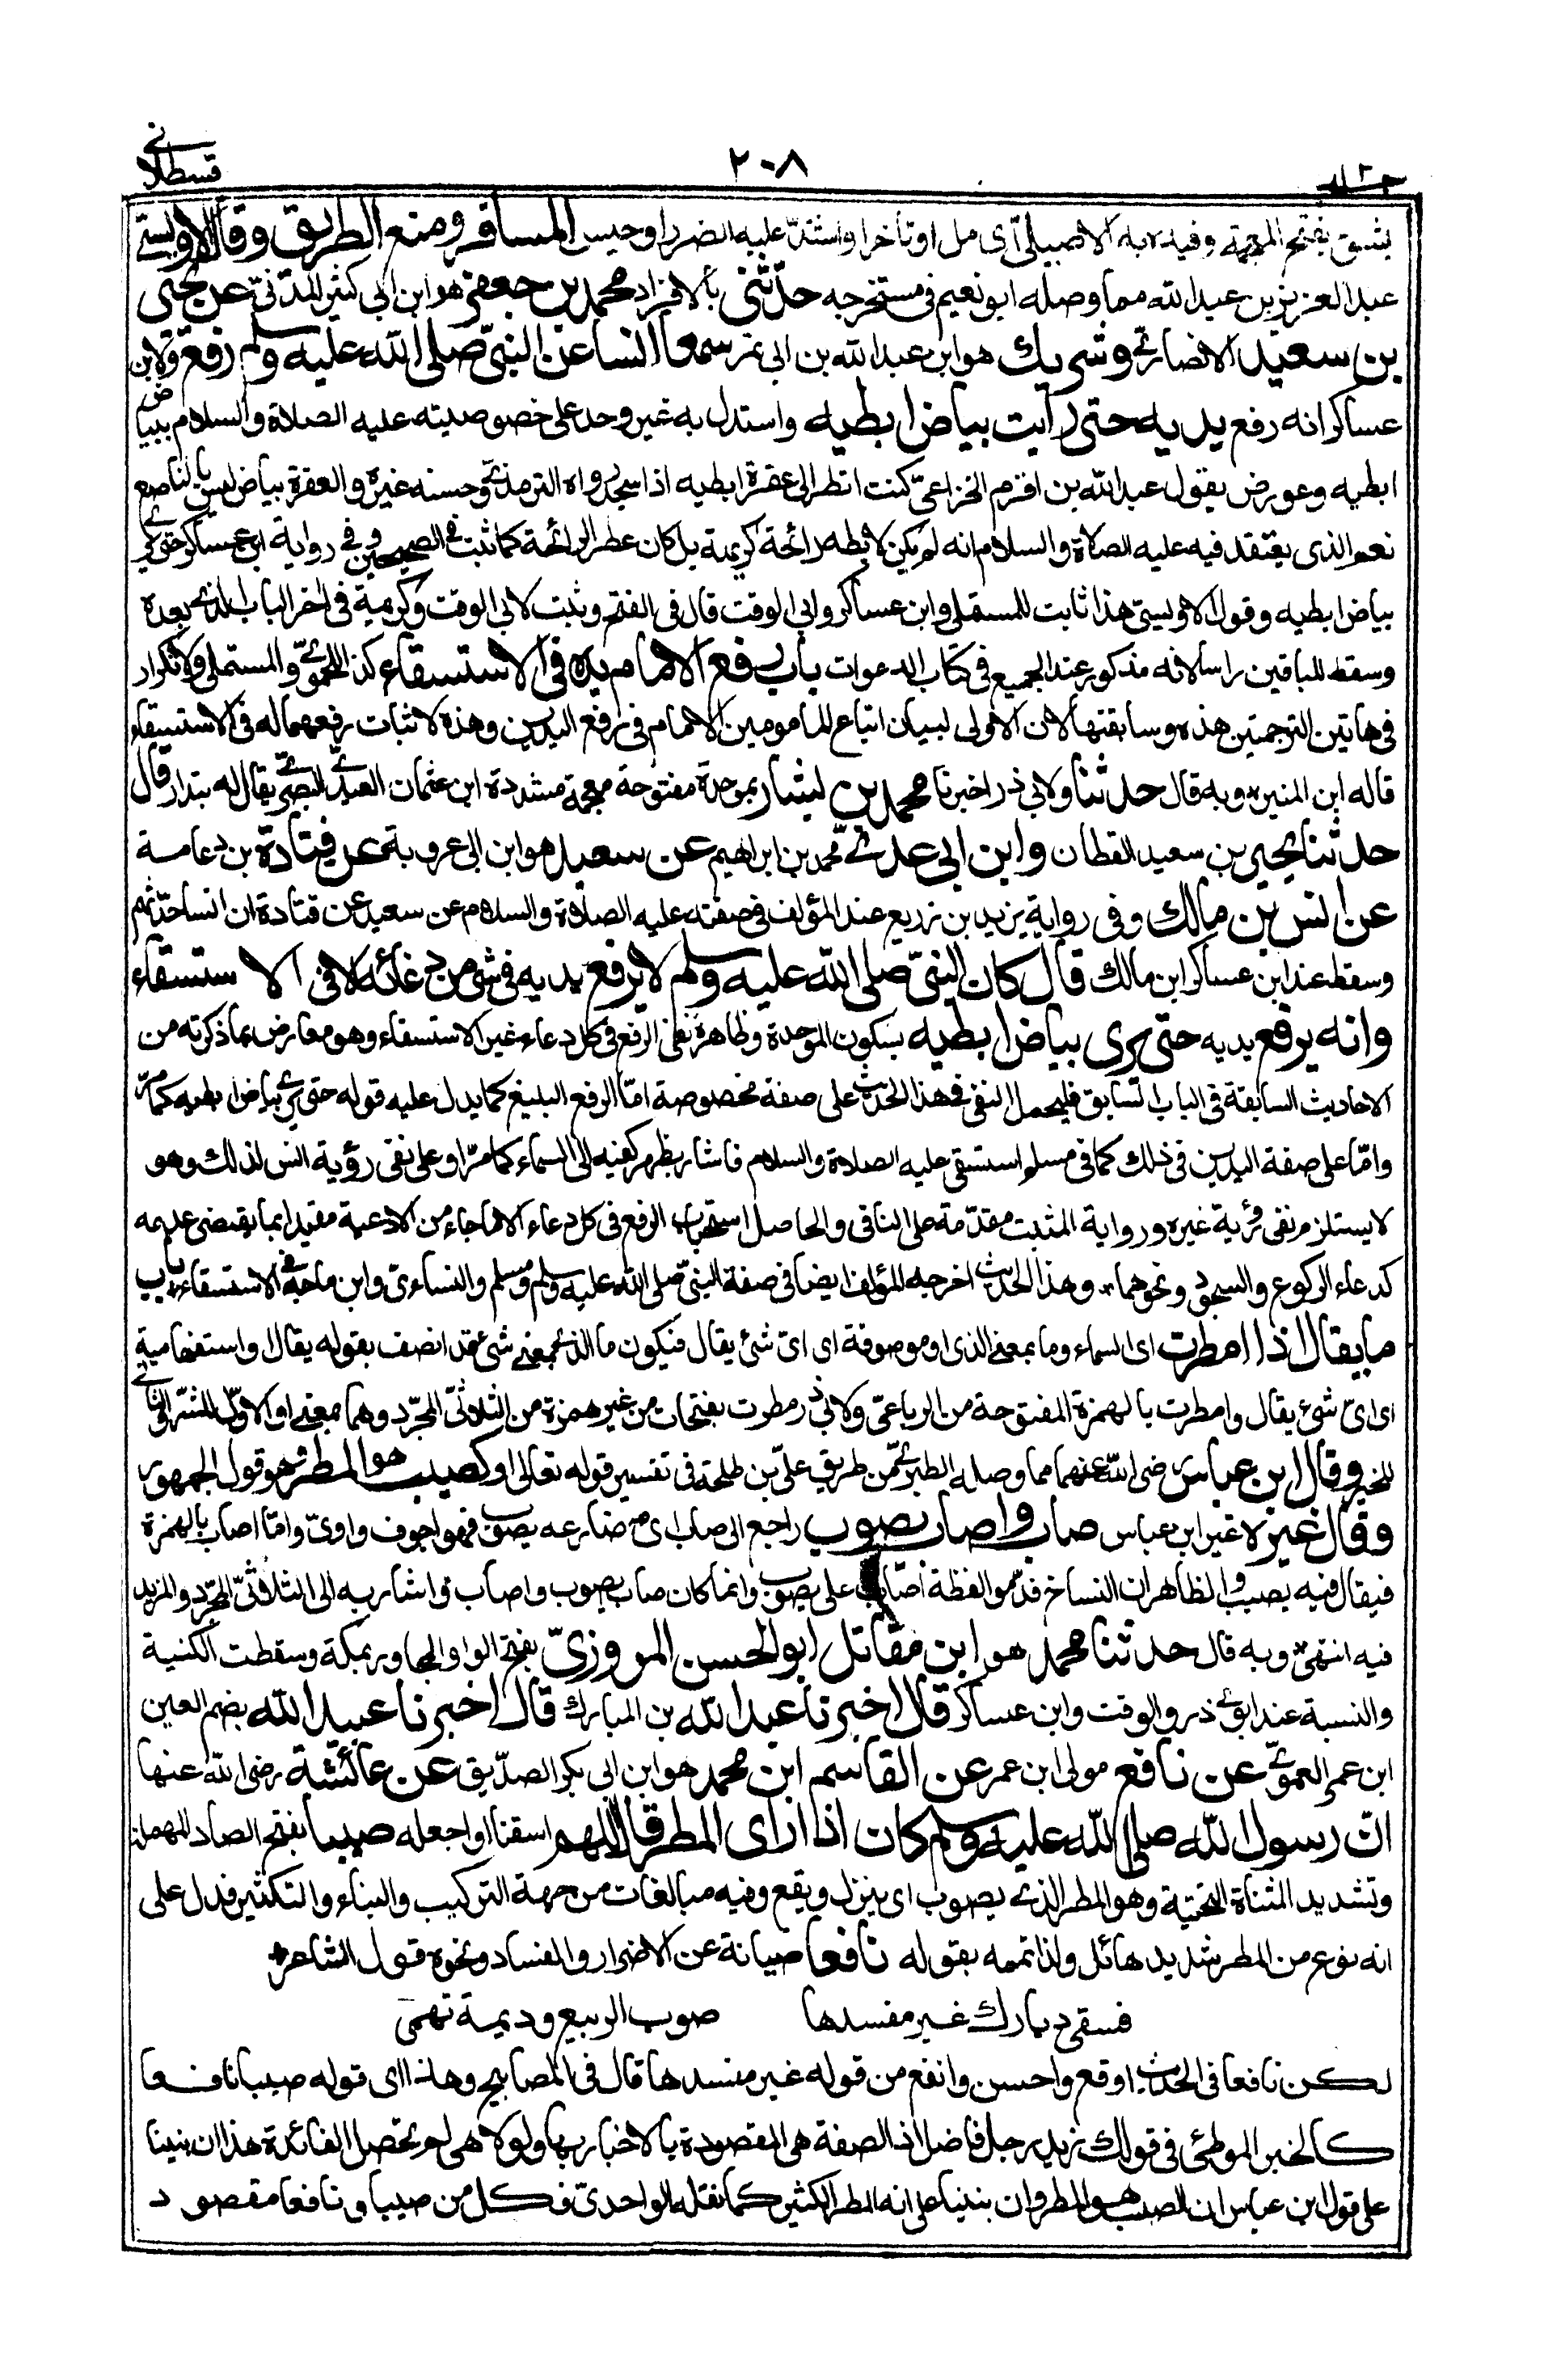 قسطلانے
٢٠٨
جلد ٢
بشق بفتح المعجمة وقيده به الاصيلى اى مل او تأخر او اشتد عليه الضرر او حبس المسافر ومنع الطريق وقال الاويسے
عبد العزيز بن عبد الله مما وصله ابو نعيم فى مستخرجه حدثنى بالافراد محمد بن جعفر هو ابن ابى كثير المدنى عن يحيى
بن سعيد الانصارے وشريك هو ابن عبد الله بن ابى نمر سمعا انسا عن النبى صلى الله عليه وسلم رفع ولابن
عساكر انه رفع يديه حتى رايت بياض ابطيه واستدل به غير واحد على خصوصيته عليه الصلاة والسلام ببياض
ابطيه وعورض بقول عبد الله بن اقرم الخزاعى كنت انظر الى عفرة ابطيه اذا سجد رواه الترمذى وحسنه غيره والعفرة بياض ليس بالناصع
نعم الذى يعتقد فيه عليه الصلاة والسلام انه لم يكن لابطه رائحة كريهة بل كان عطر الرائحة كما ثبت فى الصحيحين وفے رواية ابن عساكر حتى يرى
بياض ابطيه وقول الاويسى هذا ثابت للمستملى وابن عساكر وابى الوقت قال فى الفتح وثبت لابى الوقت وكريمة فى اخر الباب الذى بعده
وسقط للباقين راسا لانه مذكور عند الجميع فى كتاب الدعوات باب رفع الامام يده فى الاستسقاء كذا للحموى والمستملى ولا تكرار
فى هاتين الترجمتين هذه وسابقتها لان الاولى لبيان اتباع المامومين الامام فى رفع اليدين وهذه لاثبات رفعهما له فى الاستسقاء
قاله ابن المنير وبه قال حدثنا ولابى ذر اخبرنا محمد بن بشار بموحدة مفتوحة معجمة مشددة ابن عثمان العبدے البصرے يقال له بندار قال
حدثنا يحيى بن سعيد القطان وابن ابى عدے محمد بن ابراهيم عن سعيد هو ابن ابى عروبة عن قتادة بن دعامة
عن انس بن مالك وفى رواية يزيد بن زريع عند المؤلف فى صفته عليه الصلاة والسلام عن سعيد عن قتادة ان انسا حدثهم
وسقط عند ابن عساكر ابن مالك قال كان النبى صلى الله عليه وسلم لا يرفع يديه فى شئ من دعائه الا فى الاستسقاء
وانه يرفع يديه حتى يرى بياض ابطيه بسكون الموحدة وظاهره نفى الرفع فى كل دعاء غير الاستسقاء وهو معارض بما ذكرته من
الاحاديث السابقة فى الباب السابق فليحمل النفى فى هذا الحديث على صفة مخصوصة اما الرفع البليغ كما يدل عليه قوله حتى يرى بياض ابطيه كما مر
واما على صفة اليدين فى ذلك كما فى مسلم استسقى عليه الصلاة والسلام فاشار بظهر كفيه الى السماء كما مر او على نفى رؤية انس لذلك وهو
لا يستلزم نفى رؤية غيره ورواية المثبت مقدمة على النافى والحاصل استحباب الرفع فى كل دعاء الا ما جاء من الادعية مقيدا بما يقتضى عدمه
كدعاء الركوع والسجود ونحوهما وهذا الحديث اخرجه المؤلف ايضا فى صفة النبى صلى الله عليه وسلم ومسلم والنساءى وابن ماجة فى الاستسقاء باب
ما يقال اذا امطرت اى السماء وما بمعنى الذى او موصوفة اى اى شئ يقال فتكون ما الذى بمعنى شئ قد اتصف بقوله يقال او استفهامية
اى اى شئ يقال وامطرت بالهمزة المفتوحة من الرباعى ولابى ذر مطرت بفتحات من غير همزة من الثلاثى المجرد وهما بمعنى او الاول للشر والثانى
للخير وقال ابن عباس رضى الله عنهما مما وصله الطبرى من طريق على بن طلحة فى تفسير قوله تعالى او كصيب هو المطر هو قول الجمهور
وقال غيره لا غير ابن عباس صاب واصاب يصوب راجع الى صاب اى مضارعه يصوب فهو اجوف واوى واما اصاب بالهمزة
فيقال فيه يصيب والظاهر ان النساخ قدموا لفظة اصاب على يصوب وانما كان صاب يصوب واصاب واشار به الى الثلاثى المجرد والمزيد
فيه انتهى وبه قال حدثنا محمد هو ابن مقاتل ابو الحسن المروزى بفتح الواو المجاور بمكة وسقطت الكنية
والنسبة عند ابى ذر والوقت وابن عساكر قال اخبرنا عبد الله بن المبارك قال اخبرنا عبيد الله بضم العين
ابن عمر العموى عن نافع مولى ابن عمر عن القاسم ابن محمد هو ابن ابى بكر الصديق عن عائشة رضى الله عنها
ان رسول الله صلى الله عليه وسلم كان اذا راى المطر قال اللهم اسقنا او اجعله صيبا بفتح الصاد المهملة
وتشديد المثناة التحتية وهو المطر الذے يصوب اى ينزل ويقع وفيه مبالغات من جهة التركيب والبناء والتكثير فدل على
انه نوع من المطر شديد هائل ولذا تممه بقوله نافعا صيانة عن الاضرار والفساد ونحوه قول الشاعر
فسقى ديارك غير مفسدها صوب الربيع وديمة تهمى
لكن نافعا فى الحديث اوقع واحسن وانفع من قوله غير مفسدها قال فى المصابيح وهذا اى قوله صيبا نافعا
كالخبر الموطئ فى قولك زيد رجل فاضل اذ الصفة هى المقصودة بالاخبار بها ولولا هى لم تحصل الفائدة هذا ان بنينا
على قول ابن عباس ان الصيب هو المطر وان بنينا على انه المطر الكثير كما نقله الواحدى فكل من صيبا و نافعا مقصود